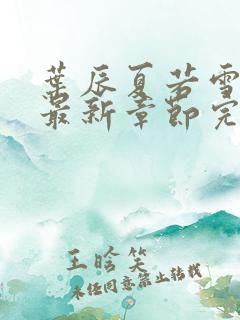 葉辰夏若雪
最新章節完
王晗笑
未经同意禁止转载